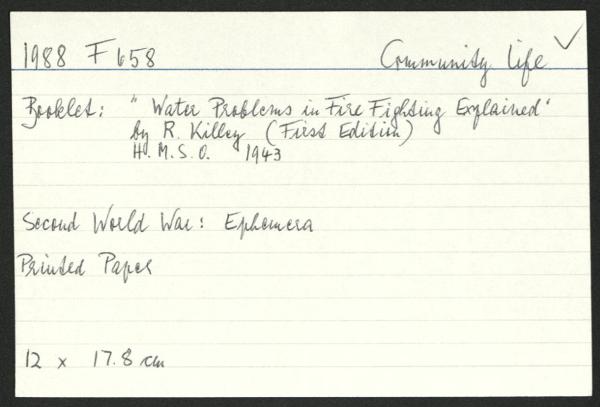 1988 F658 Community Life ✓
Booklet: "Water Problems in Fire Fighting Explained"
by R. Killey (First Edition)
H.M.S.O. 1943
Second World War: Ephemera
Printed Paper
12 x 17.8 cm